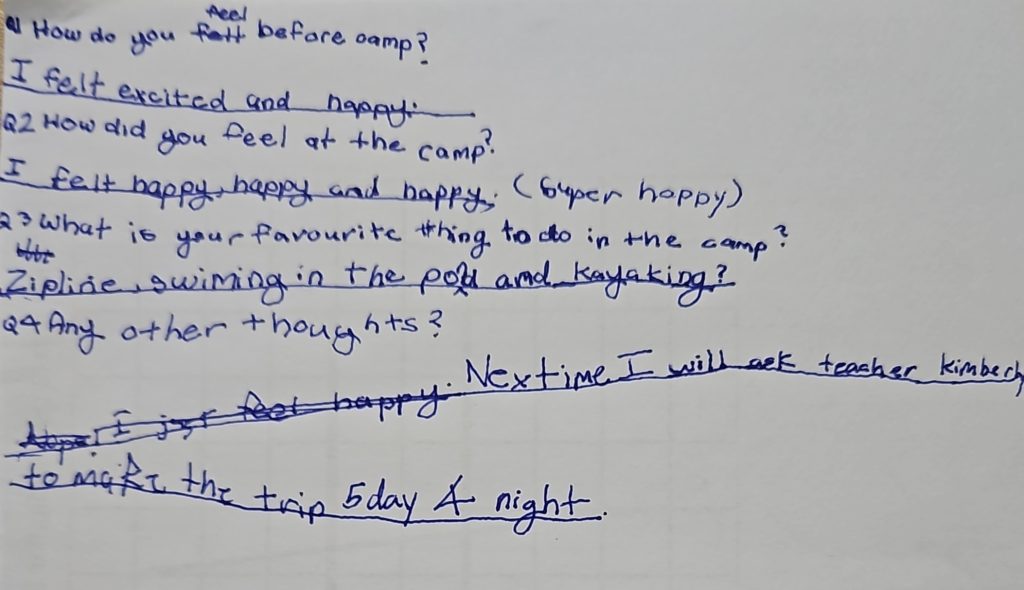 Q1 How do you feel before camp?
I felt excited and happy.
Q2 How did you feel at the camp?
I felt happy, happy and happy. (Super happy)
Q3 What is your favourite thing to do in the camp?
Zipline, swiming in the pool and kayaking?
Q4 Any other thoughts?
I just feel happy. Nextime I will ask teacher kimberly
to make the trip 5day 4 night.